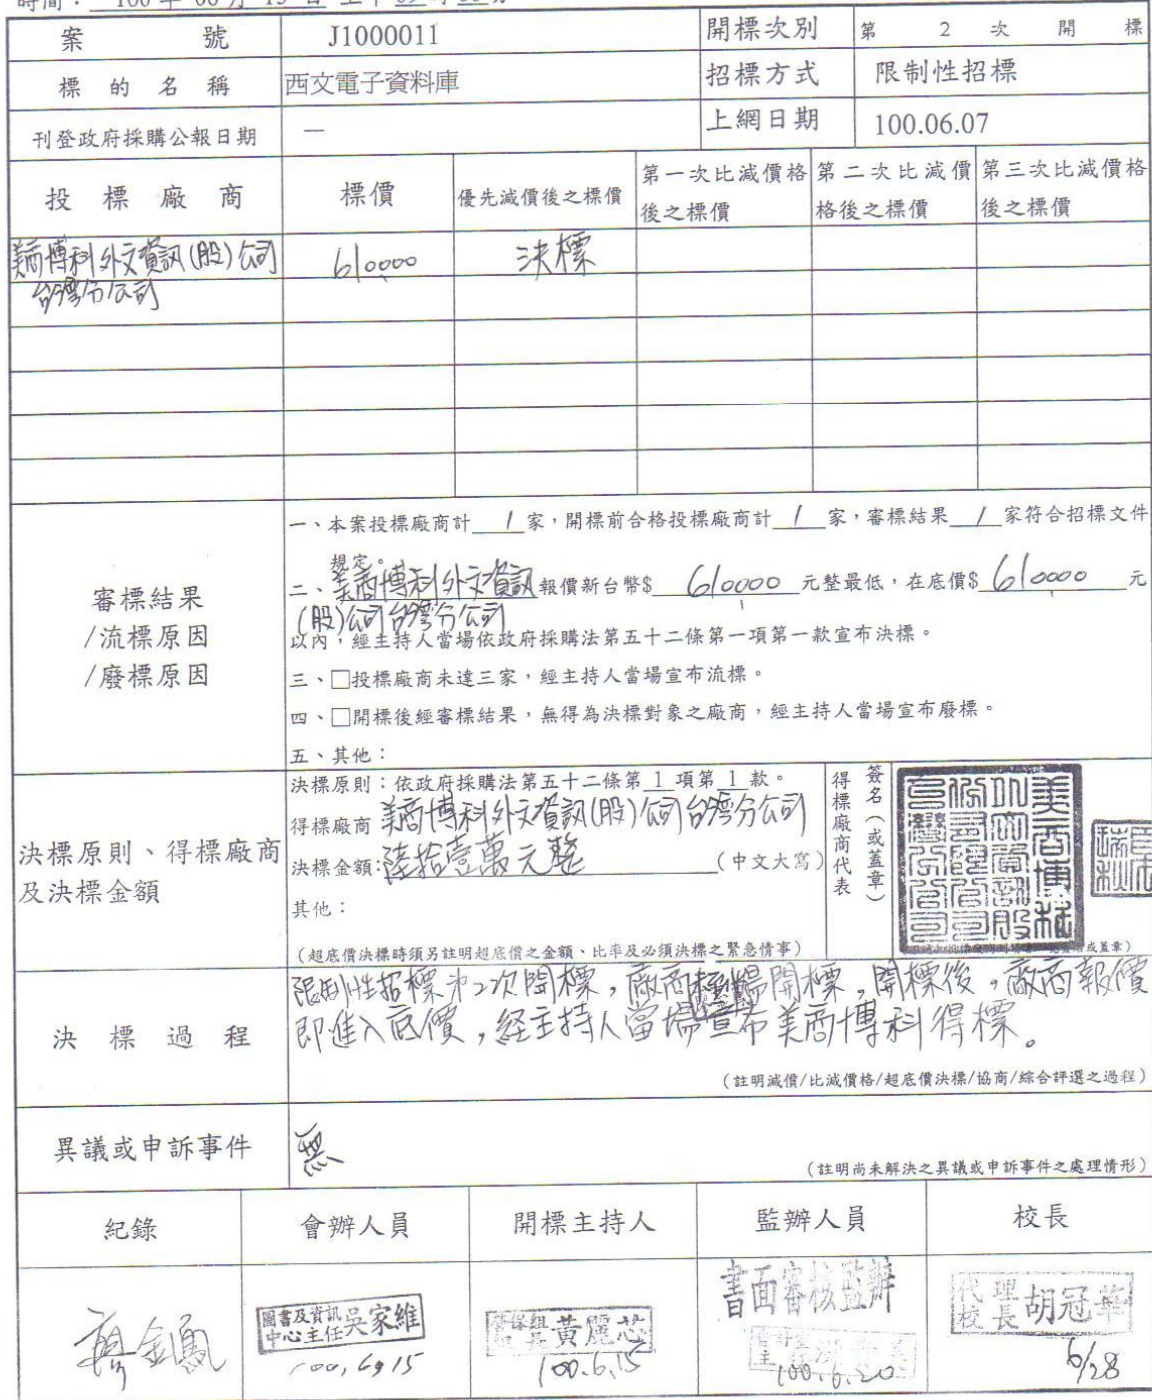 時間： 100 年 06 月 15 日 上午 09 時
案號 J1000011 開標次別 第 2 次開標
標的名稱 西文電子資料庫 招標方式 限制性招標
刊登政府採購公報日期 — 上網日期 100.06.07
投標廠商 標價 優先減價後之標價 第一次比減價格後之標價 第二次比減價格後之標價 第三次比減價格後之標價
美商博科外文資訊(股)公司 610000 決標
台灣分公司
審標結果
/流標原因
/廢標原因
一、本案投標廠商計 1 家，開標前合格投標廠商計 1 家，審標結果 1 家符合招標文件
規定。
二、美商博科外文資訊 報價新台幣$ 610000 元整最低，在底價$ 610000 元
(股)公司台灣分公司
以內，經主持人當場依政府採購法第五十二條第一項第一款宣布決標。
三、□投標廠商未達三家，經主持人當場宣布流標。
四、□開標後經審標結果，無得為決標對象之廠商，經主持人當場宣布廢標。
五、其他：
決標原則、得標廠商
及決標金額
決標原則：依政府採購法第五十二條第 1 項第 1 款。
得標廠商 美商博科外文資訊(股)公司台灣分公司
決標金額:陸拾壹萬元整 (中文大寫)
其他：
(超底價決標時須另註明超底價之金額、比率及必須決標之緊急情事)
得標廠商代表
簽名(或蓋章)
或蓋章)
決標過程
限制性招標第2次開標，廠商 開標，開標後，廠商報價
即進入底價，經主持人當場宣布美商博科得標。
(註明減價/比減價格/超底價決標/協商/綜合評選之過程)
異議或申訴事件 無
(註明尚未解決之異議或申訴事件之處理情形)
紀錄 會辦人員 開標主持人 監辦人員 校長
廖金鳳
圖書及資訊
中心主任 吳家維
100.6.15
組長 黃麗芯
100.6.15
書面審核監辦
100.6.20
代理
校長 胡冠華
6/28